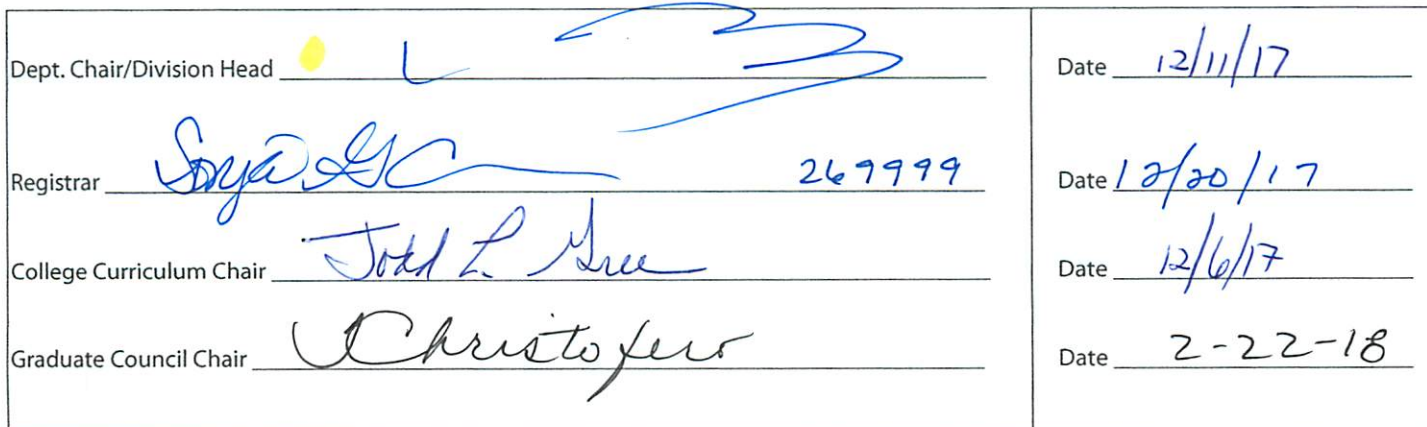 Dept. Chair/Division Head Date 12/11/17
Registrar Sonya 269999 Date 12/20/17
College Curriculum Chair Todd L. Green Date 12/6/17
Graduate Council Chair Christofero Date 2-22-18